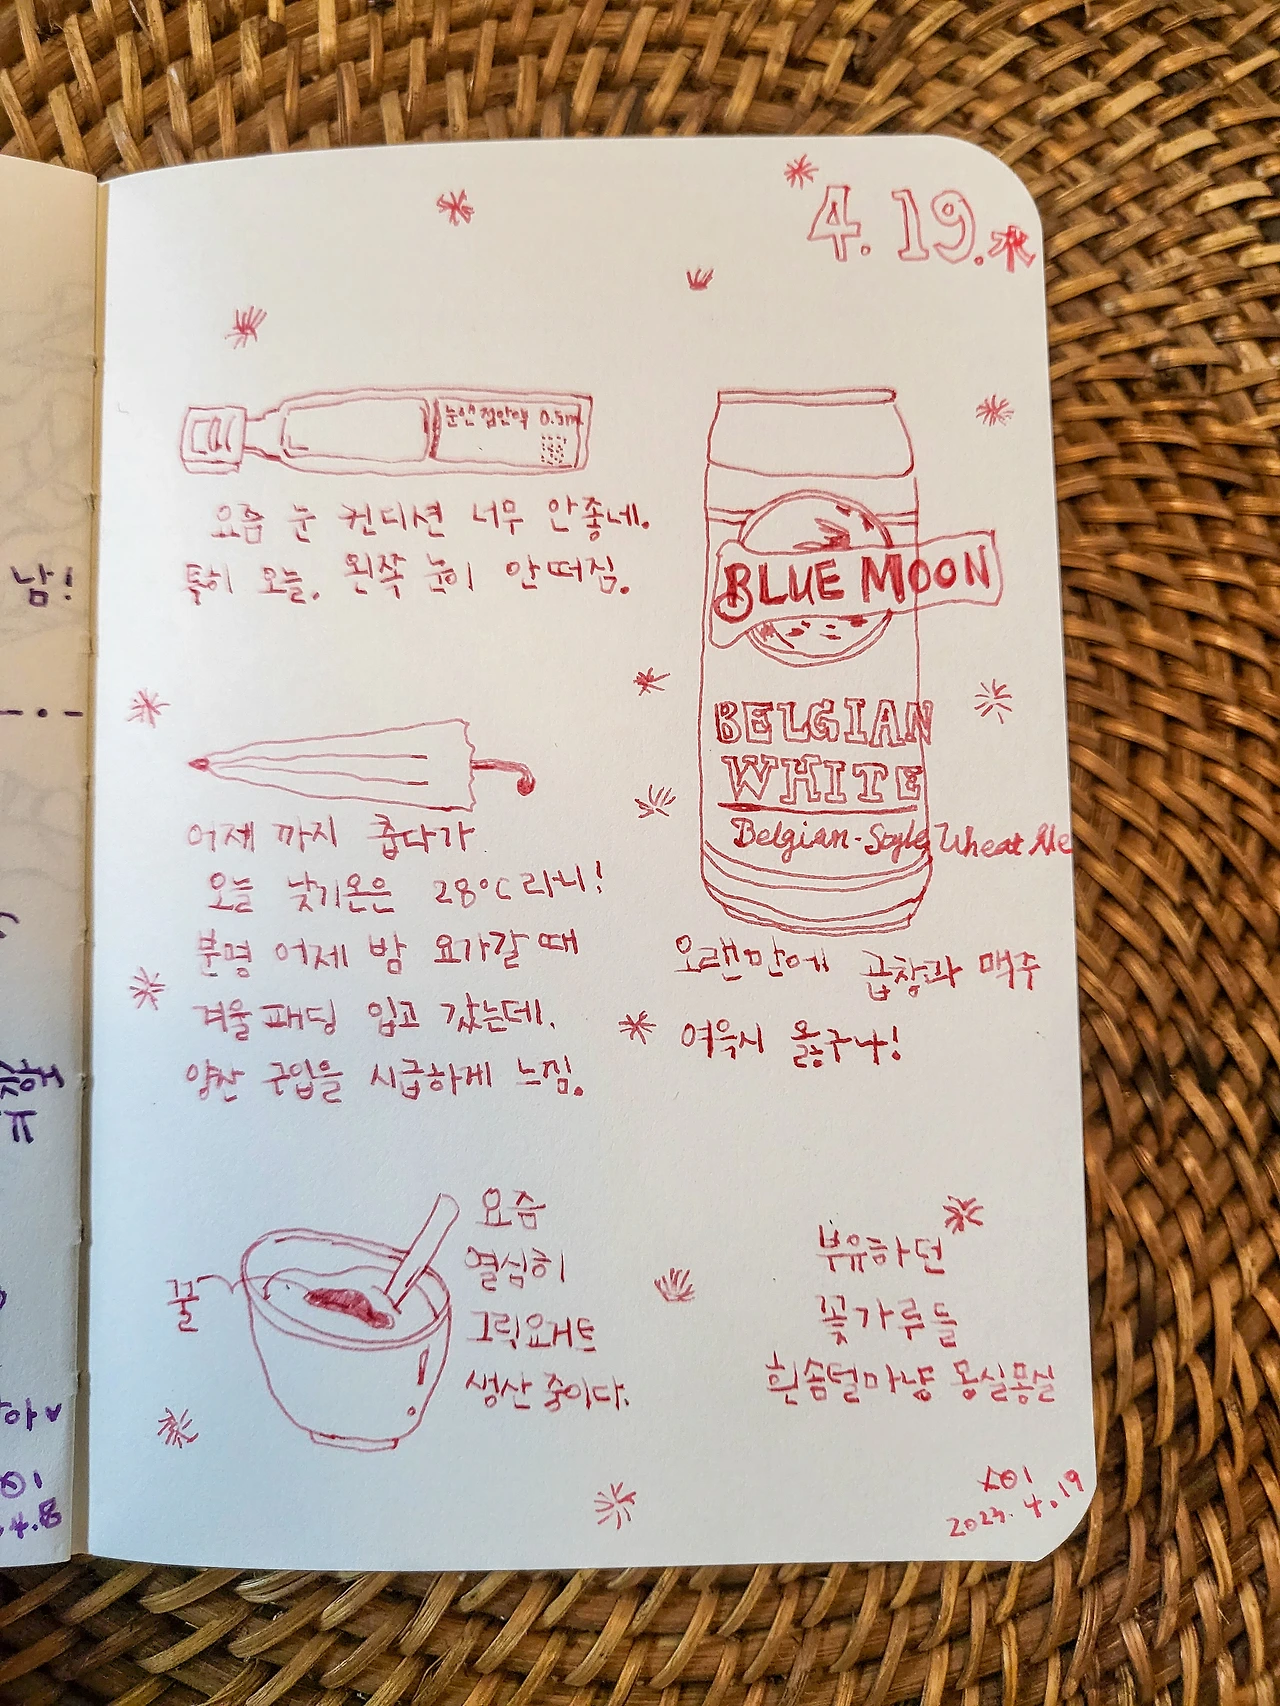 4. 19. 水
눈앤점안액 0.5ml
요즘 눈 컨디션 너무 안좋네.
특히 오늘. 왼쪽 눈이 안떠짐.
BLUE MOON
BELGIAN
WHITE
Belgian-Style Wheat Ale
오랜만에 곱창과 맥주
여윽시 올쿠나!
어제 까지 춥다가
오늘 낮기온은 28°C라니!
분명 어제 밤 요가갈 때
겨울패딩 입고 갔는데.
양산 구입을 시급하게 느낌.
꿀
요즘
열심히
그릭요거트
생산 중이다.
부유하던
꽃가루들
흰솜털마냥 몽실몽실
2023. 4. 19
남!
4.8